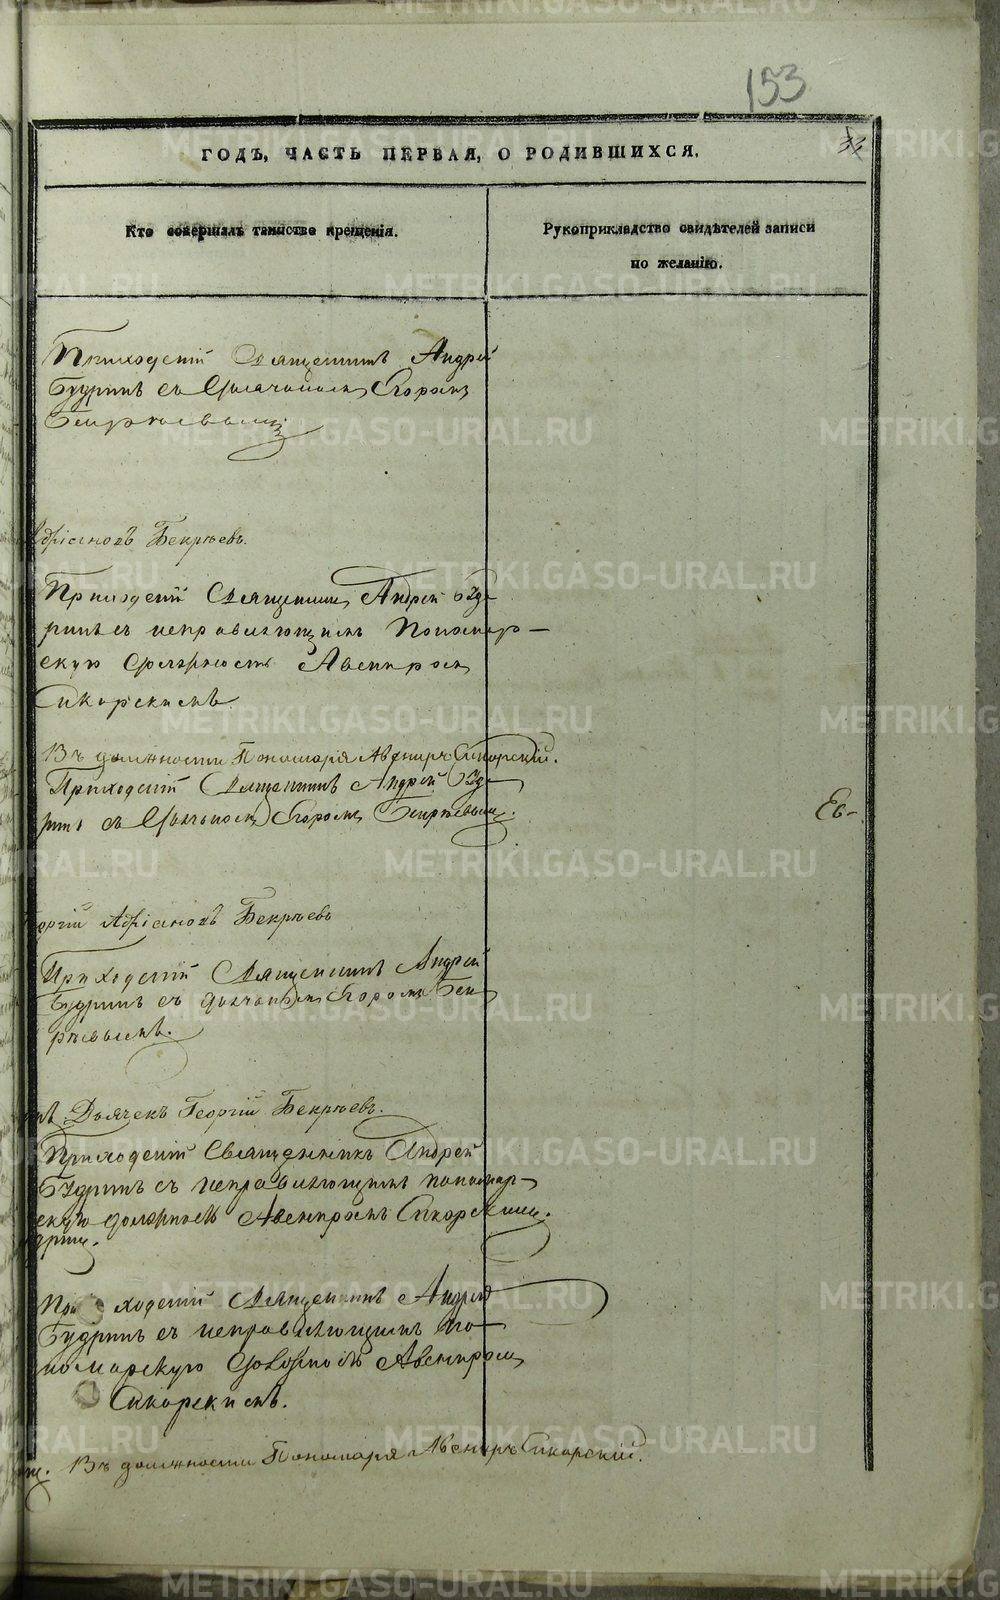 153
33
ГОДЪ, ЧАСТЬ ПЕРВАЯ, О РОДИВШИХСЯ.
Кто совершалъ таинство крещенія.
Рукоприкладство свидѣтелей записи
по желанію.
Приходскій Священникъ Андрей
Будринъ съ Дьячкомъ Егоромъ
Бекрѣевымъ
Адріановъ Бекрѣевъ.
Приходскій Священникъ Андрей Буд-
ринъ съ исправляющимъ Пономар-
скую должность Авениромъ
Сикорскимъ.
Въ должности Пономаря Авениръ Сикорскій.
Приходскій Священникъ Андрей Буд-
ринъ съ Дьячкомъ Егоромъ Бекрѣевымъ.
Ев-
оргій Адріановъ Бекрѣевъ
Приходскій Священникъ Андрей
Будринъ съ дьячкомъ Егоромъ Бек-
рѣевымъ.
Дьячекъ Георгій Бекрѣевъ.
Приходскій Священникъ Андрей
Будринъ съ исправляющимъ пономар-
скую должность Авениромъ Сикорскимъ.
дринъ.
Приходскій Священникъ Андрей
Будринъ съ исправляющимъ по-
номарскую должность Авениромъ
Сикорскимъ.
Въ должности Пономаря Авениръ Сикорскій.
METRIKI.GASO-URAL.RU